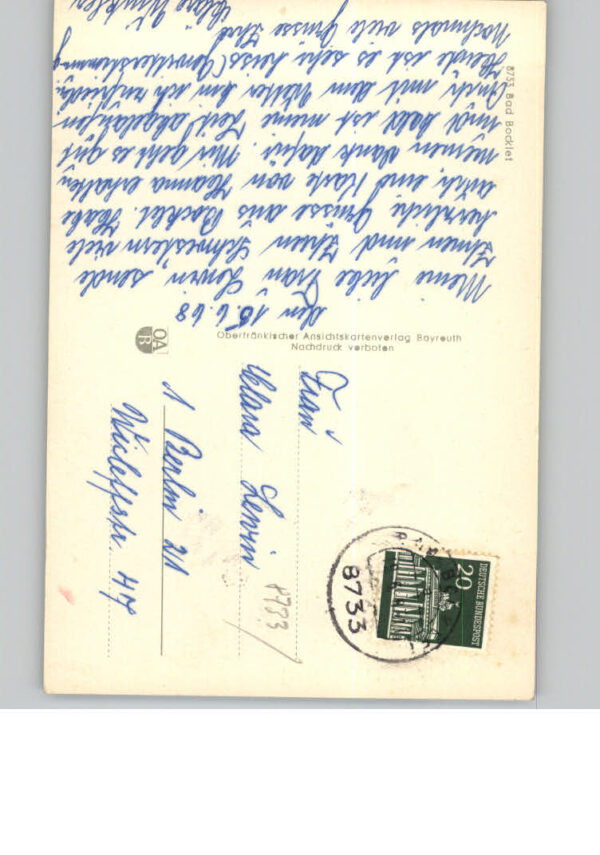 8733 Bad Bocklet
den 16.6.68
Meine liebe Frau Lewin, sende
Ihnen und Ihren Schwestern viele
herzliche Grüsse aus Bocklet. Habe
auch eine Karte von Hanna erhalten,
meinen Dank dafür. Mir geht es gut
und bald ist meine Zeit abgelaufen
Auch mit dem Wetter bin ich zufrieden.
Heute ist es sehr heiss (Gewitterstimmung
Nochmals viele Grüsse Ihre
Oberfränkischer Ansichtskartenverlag Bayreuth
Nachdruck verboten
OA
B
Frau
Clara Lewin
1 Berlin 21
Wiclefstr. 47
8733
20
DEUTSCHE BUNDESPOST
8733